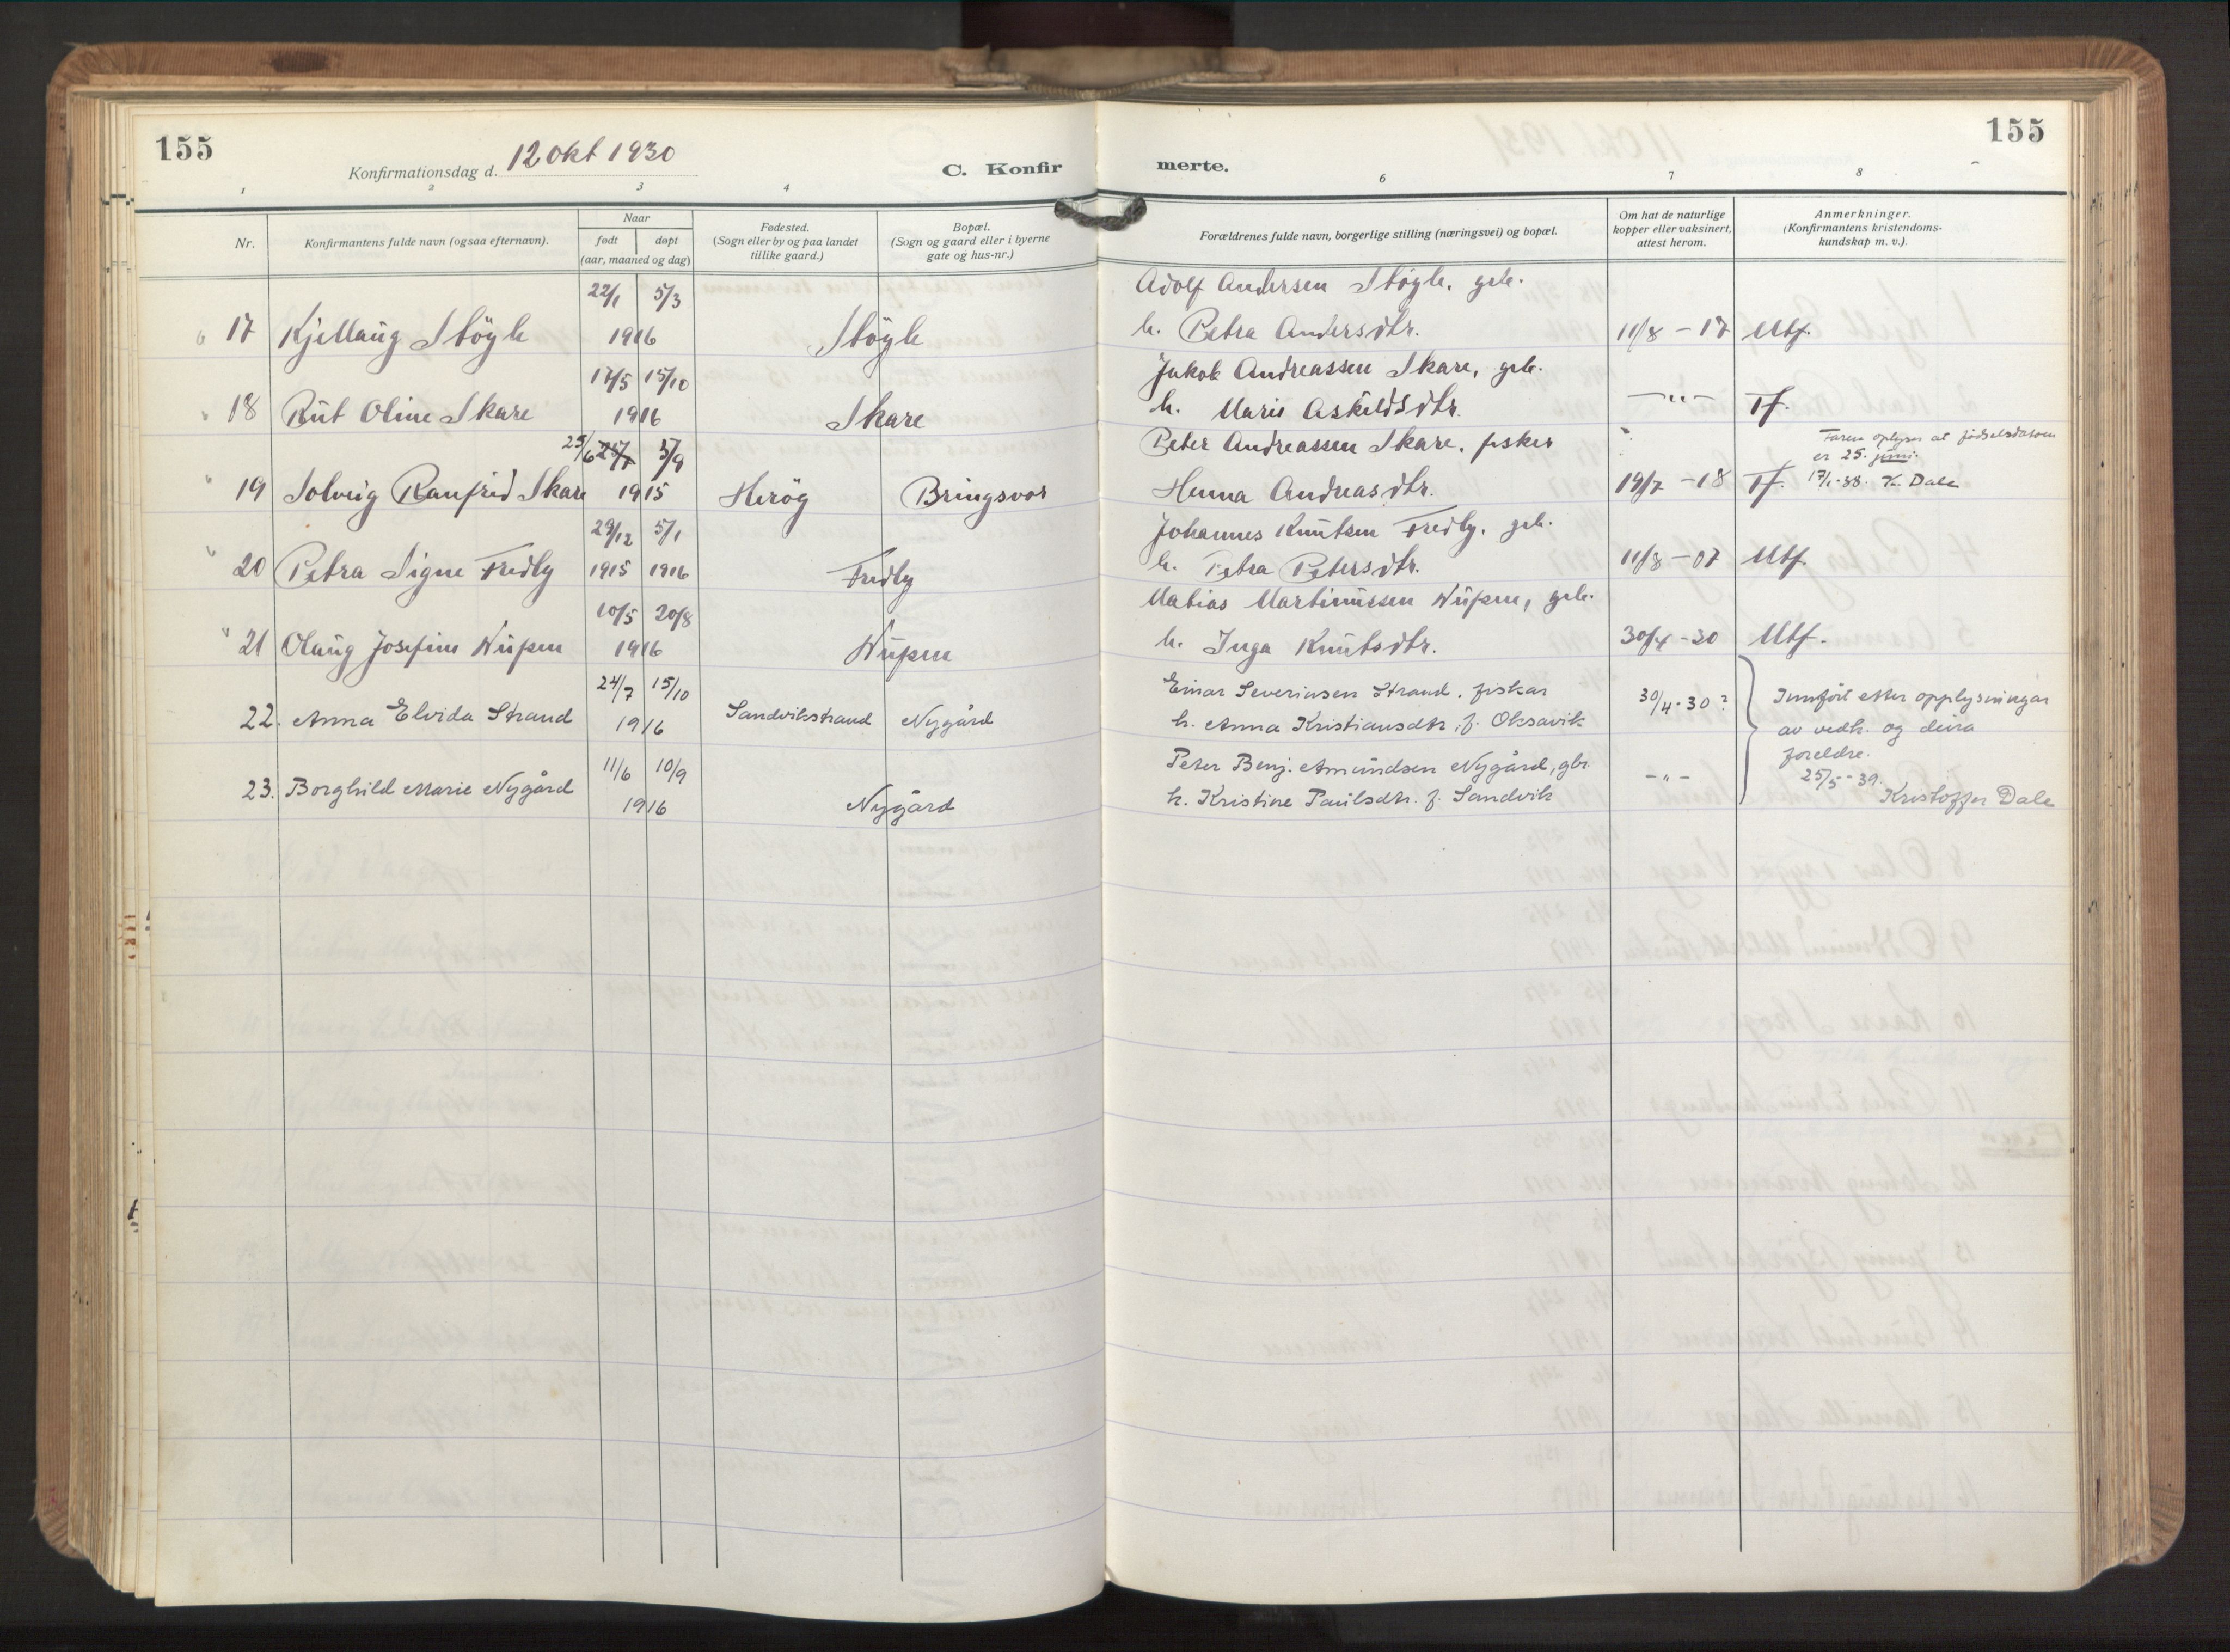 155
155
Konfirmationsdag d. 12 Okt 1930
C. Konfir
merte.
1 2 3 4 6 7 8
Nr.
Konfirmantens fulde navn (ogsaa efternavn).
Naar
født døpt
(aar, maaned og dag)
Fødested.
(Sogn eller by og paa landet
tillike gaard.)
Bopæl.
(Sogn og gaard eller i byerne
gate og hus-nr.)
Forældrenes fulde navn, borgerlige stilling (næringsvei) og bopæl.
Om hat de naturlige
kopper eller vaksinert,
attest herom.
Anmerkninger.
(Konfirmantens kristendoms-
kundskap m. v.).
22/1 5/3 Adolf Andersen Støyle, grb.
17 Kjellaug Støyle 1916 Støyle h. Petra Andersdtr. 11/8 - 17 Mtf.
17/5 15/10 Jakob Andreassen Skare, grb.
18 Rut Oline Skare 1916 Skare h. Marie Askildsdtr. -"- Tf.
25/6 5/9 Peter Andreassen Skare, fisker Faren oplyser at fødselsdatoen
er 25. juni.
19 Solveig Ranfrid Skare 1915 Herøy Bringsvor Henna Andreasdtr. 19/7 - 18 Tf. 17/1-38. K. Dale
29/12 5/1 Johannes Knutsen Fredly, grb.
20 Petra Signe Fredly 1915 1916 Fredly h. Petra Petersdtr. 11/8 - 07 Mtf.
10/5 20/8 Matias Martinussen Nupen, grb.
21 Olaug Josefine Nupen 1916 Nupen h. Inga Knutsdtr. 30/4 - 30 Mtf.
24/7 15/10 Einar Severinsen Strand, fiskar
22. Anna Elvida Strand 1916 Sandvikstrand Nygård h. Anna Kristiansdtr. f. Oksavik 30/4-30? Innført etter opplysningar
av vedk. og deira
foreldre.
11/6 10/9 Peter Benj. Amundsen Nygård, gbr.
23. Borghild Marie Nygård 1916 Nygård h. Kristine Paulsdtr. f. Sandvik -"- 25/5-39.
Kristoffer Dale